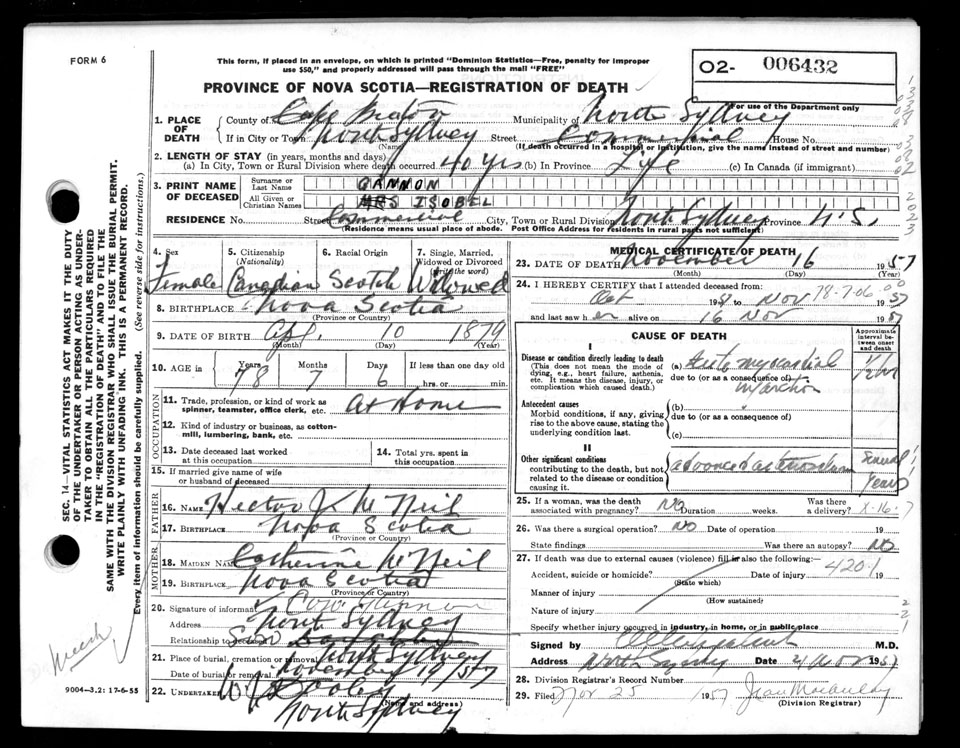 FORM 6
This form, if placed in an envelope, on which is printed "Dominion Statistics—Free, penalty for improper
use $50," and properly addressed will pass through the mail "FREE"
O2- 006432
For use of the Department only
PROVINCE OF NOVA SCOTIA—REGISTRATION OF DEATH
1. PLACE OF DEATH
County of Cape Breton Municipality of North Sydney
If in City or Town North Sydney Street Commercial House No.
(Name) (If death occurred in a hospital or institution, give the name instead of street and number)
2. LENGTH OF STAY (in years, months and days)
(a) In City, Town or Rural Division where death occurred 40 yrs (b) In Province Life (c) In Canada (if immigrant)
3. PRINT NAME OF DECEASED
Surname or Last Name GANNON
All Given or Christian Names MRS ISOBEL
RESIDENCE No. Street Commercial City, Town or Rural Division North Sydney Province N.S.
(Residence means usual place of abode. Post Office Address for residents in rural parts not sufficient)
4. Sex Female
5. Citizenship (Nationality) Canadian
6. Racial Origin Scotch
7. Single, Married, Widowed or Divorced (Write the word) Widowed
8. BIRTHPLACE Nova Scotia
(Province or Country)
9. DATE OF BIRTH Apl. 10 1879
(Month) (Day) (Year)
10. AGE in Years 78 Months 7 Days 6 If less than one day old hrs. or min.
OCCUPATION
11. Trade, profession, or kind of work as spinner, teamster, office clerk, etc. At Home
12. Kind of industry or business, as cotton-mill, lumbering, bank, etc.
13. Date deceased last worked at this occupation
14. Total yrs. spent in this occupation
15. If married give name of wife or husband of deceased
FATHER
16. NAME Hector J. McNeil
17. BIRTHPLACE Nova Scotia
(Province or Country)
MOTHER
18. MAIDEN NAME Catherine McNeil
19. BIRTHPLACE Nova Scotia
(Province or Country)
20. Signature of informant Gannon
Address North Sydney
Relationship to deceased Son
21. Place of burial, cremation or removal North Sydney
Date of burial or removal November 19/57
22. UNDERTAKER W. J. Dooley
(Name and address)
North Sydney
MEDICAL CERTIFICATE OF DEATH
23. DATE OF DEATH November 16 1957
(Month) (Day) (Year)
24. I HEREBY CERTIFY that I attended deceased from:
Oct 1951 to Nov 1957
78-7-06
and last saw her alive on 16 Nov 1957
CAUSE OF DEATH
Approximate interval between onset and death
I
Disease or condition directly leading to death
(This does not mean the mode of dying, e.g., heart failure, asthenia, etc. It means the disease, injury, or complication which caused death.)
(a) Acute myocardial infarction
due to (or as a consequence of)
Antecedent causes
Morbid conditions, if any, giving rise to the above cause, stating the underlying condition last.
(b)
due to (or as a consequence of)
(c)
II
Other significant conditions
contributing to the death, but not related to the disease or condition causing it.
advanced
several years
25. If a woman, was the death associated with pregnancy? No Duration weeks. Was there a delivery? X-16-7
26. Was there a surgical operation? NO Date of operation 19
State findings Was there an autopsy? NO
27. If death was due to external causes (violence) fill in also the following:
4201
Accident, suicide or homicide? Date of injury 19
(State which)
Manner of injury
(How sustained)
Nature of injury
Specify whether injury occurred in industry, in home, or in public place
Signed by M.D.
Address North Sydney Date Nov 1957
28. Division Registrar's Record Number
29. Filed Nov 25 1957 Jean Macaulay
(Division Registrar)
SEC. 14—VITAL STATISTICS ACT MAKES IT THE DUTY
OF THE UNDERTAKER OR PERSON ACTING AS UNDER-
TAKER TO OBTAIN ALL THE PARTICULARS REQUIRED
IN THE "REGISTRATION OF DEATH" AND TO FILE THE
SAME WITH THE DIVISION REGISTRAR WHO SHALL ISSUE THE BURIAL PERMIT.
WRITE PLAINLY WITH UNFADING INK. THIS IS A PERMANENT RECORD.
Every item of information should be carefully supplied. (See reverse side for instructions.)
9004—3.2: 17-6-55